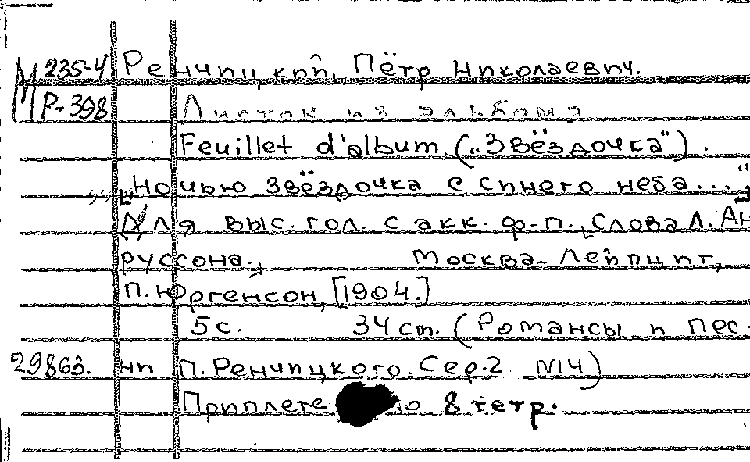 М 235-4 Ренчицкий, Пётр Николаевич.
Р-398 Листок из альбома
Feuillet d'album („Звёздочка").
„Ночью звёздочка с синего неба..."
Для выс. гол. с акк. ф-п. Слова Л. Ан
руссона. Москва-Лейпциг,
П. Юргенсон, [1904.]
5 с. 34 cm. (Романсы и пес-
29863. ни П. Ренчицкого. Сер. 2 №14)
8 тетр.